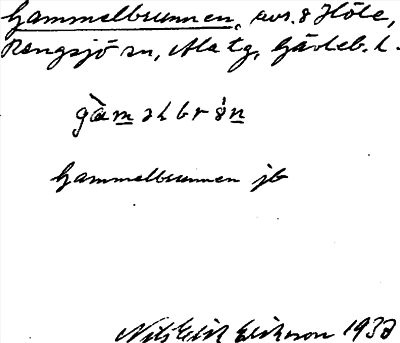 Gammelbrunnen, avs. 8 Höle,
Rengsjö sn, Ala tg, Gävleb. l.
gàmalbrån
Gammelbrunnen jb
Nils Erik Erikson 1932